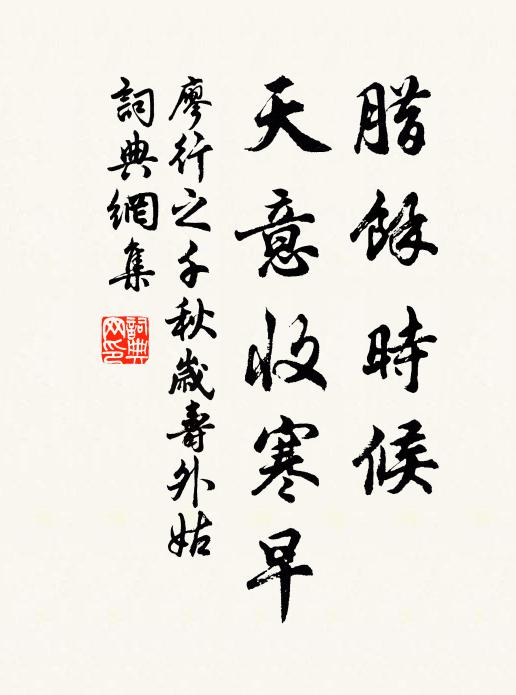 腊餘時候
天意收寒早
廖行之千秋歲壽外姑
詞典網集
詞典网印